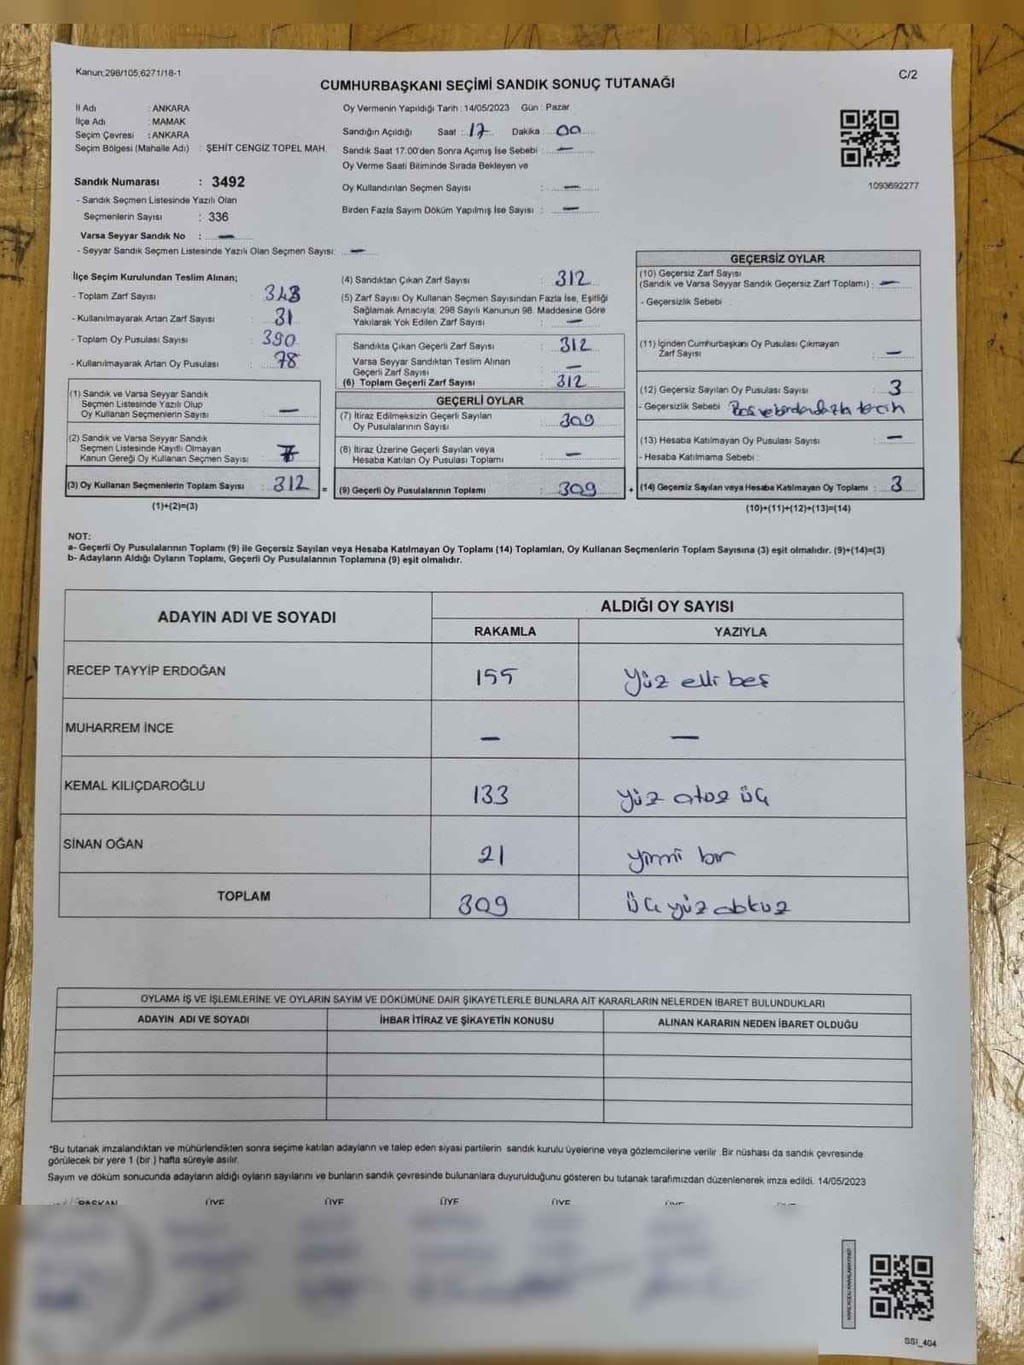 Kanun;298/105;6271/18-1
C/2
CUMHURBAŞKANI SEÇİMİ SANDIK SONUÇ TUTANAĞI
İl Adı : ANKARA
İlçe Adı : MAMAK
Seçim Çevresi : ANKARA
Seçim Bölgesi (Mahalle Adı) : ŞEHİT CENGİZ TOPEL MAH.
Sandık Numarası : 3492
- Sandık Seçmen Listesinde Yazılı Olan
Seçmenlerin Sayısı : 336
Varsa Seyyar Sandık No : —
- Seyyar Sandık Seçmen Listesinde Yazılı Olan Seçmen Sayısı: —
Oy Vermenin Yapıldığı Tarih : 14/05/2023 Gün : Pazar
Sandığın Açıldığı Saat : 17 Dakika : 00
Sandık Saat 17.00'den Sonra Açımış İse Sebebi : —
Oy Verme Saati Bitiminde Sırada Bekleyen ve
Oy Kullandırılan Seçmen Sayısı : —
Birden Fazla Sayım Döküm Yapılmış İse Sayısı : —
1093692277
İlçe Seçim Kurulundan Teslim Alınan;
- Toplam Zarf Sayısı : 343
- Kullanılmayarak Artan Zarf Sayısı : 31
- Toplam Oy Pusulası Sayısı : 390
- Kullanılmayarak Artan Oy Pusulası : 78
(1) Sandık ve Varsa Seyyar Sandık
Seçmen Listesinde Yazılı Olup
Oy Kullanan Seçmenlerin Sayısı : —
(2) Sandık ve Varsa Seyyar Sandık
Seçmen Listesinde Kayıtlı Olmayan
Kanun Gereği Oy Kullanan Seçmen Sayısı :
(3) Oy Kullanan Seçmenlerin Toplam Sayısı : 312 =
(1)+(2)=(3)
(4) Sandıktan Çıkan Zarf Sayısı : 312
(5) Zarf Sayısı Oy Kullanan Seçmen Sayısından Fazla İse, Eşitliği
Sağlamak Amacıyla; 298 Sayılı Kanunun 98. Maddesine Göre
Yakılarak Yok Edilen Zarf Sayısı : —
Sandıkta Çıkan Geçerli Zarf Sayısı : 312
Varsa Seyyar Sandıktan Teslim Alınan
Geçerli Zarf Sayısı : —
(6) Toplam Geçerli Zarf Sayısı : 312
GEÇERLİ OYLAR
(7) İtiraz Edilmeksizin Geçerli Sayılan
Oy Pusulalarının Sayısı : 309
(8) İtiraz Üzerine Geçerli Sayılan veya
Hesaba Katılan Oy Pusulası Toplamı : —
(9) Geçerli Oy Pusulalarının Toplamı : 309 +
GEÇERSİZ OYLAR
(10) Geçersiz Zarf Sayısı
(Sandık ve Varsa Seyyar Sandık Geçersiz Zarf Toplamı) : —
- Geçersizlik Sebebi :
(11) İçinden Cumhurbaşkanı Oy Pusulası Çıkmayan
Zarf Sayısı : —
(12) Geçersiz Sayılan Oy Pusulası Sayısı : 3
- Geçersizlik Sebebi : Boş ve birden fazla tercih
(13) Hesaba Katılmayan Oy Pusulası Sayısı : —
- Hesaba Katılmama Sebebi :
(14) Geçersiz Sayılan veya Hesaba Katılmayan Oy Toplamı : 3
(10)+(11)+(12)+(13)=(14)
NOT:
a- Geçerli Oy Pusulalarının Toplamı (9) ile Geçersiz Sayılan veya Hesaba Katılmayan Oy Toplamı (14) Toplamları, Oy Kullanan Seçmenlerin Toplam Sayısına (3) eşit olmalıdır. (9)+(14)=(3)
b- Adayların Aldığı Oyların Toplamı, Geçerli Oy Pusulalarının Toplamına (9) eşit olmalıdır.
ADAYIN ADI VE SOYADI
ALDIĞI OY SAYISI
RAKAMLA YAZIYLA
RECEP TAYYİP ERDOĞAN 155 Yüz elli beş
MUHARREM İNCE — —
KEMAL KILIÇDAROĞLU 133 yüz otuz üç
SİNAN OĞAN 21 yirmi bir
TOPLAM 309 üç yüz dokuz
OYLAMA İŞ VE İŞLEMLERİNE VE OYLARIN SAYIM VE DÖKÜMÜNE DAİR ŞİKAYETLERLE BUNLARA AİT KARARLARIN NELERDEN İBARET BULUNDUKLARI
ADAYIN ADI VE SOYADI İHBAR İTİRAZ VE ŞİKAYETİN KONUSU ALINAN KARARIN NEDEN İBARET OLDUĞU
*Bu tutanak imzalandıktan ve mühürlendikten sonra seçime katılan adayların ve talep eden siyasi partilerin sandık kurulu üyelerine veya gözlemcilerine verilir. Bir nüshası da sandık çevresinde
görülecek bir yere 1 (bir) hafta süreyle asılır.
Sayım ve döküm sonucunda adayların aldığı oyların sayılarını ve bunların sandık çevresinde bulunanlara duyurulduğunu gösteren bu tutanak tarafımızdan düzenlenerek imza edildi. 14/05/2023
BAŞKAN ÜYE ÜYE ÜYE ÜYE ÜYE
SSİ_404